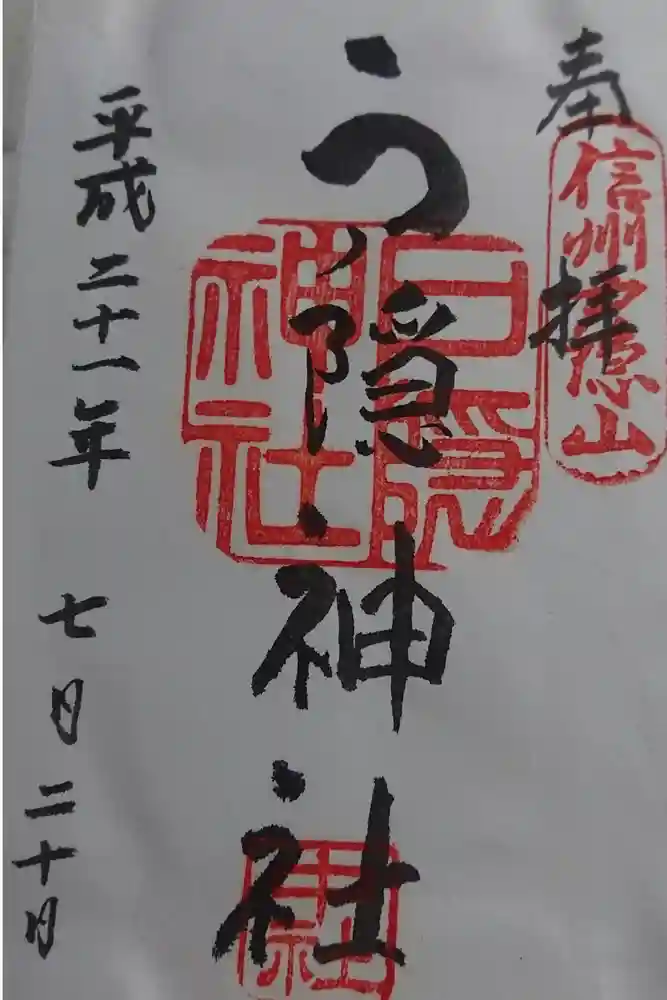 奉拝
信州戸隠山
戸隠神社
戸隠神社
中社
平成二十一年 七月二十日